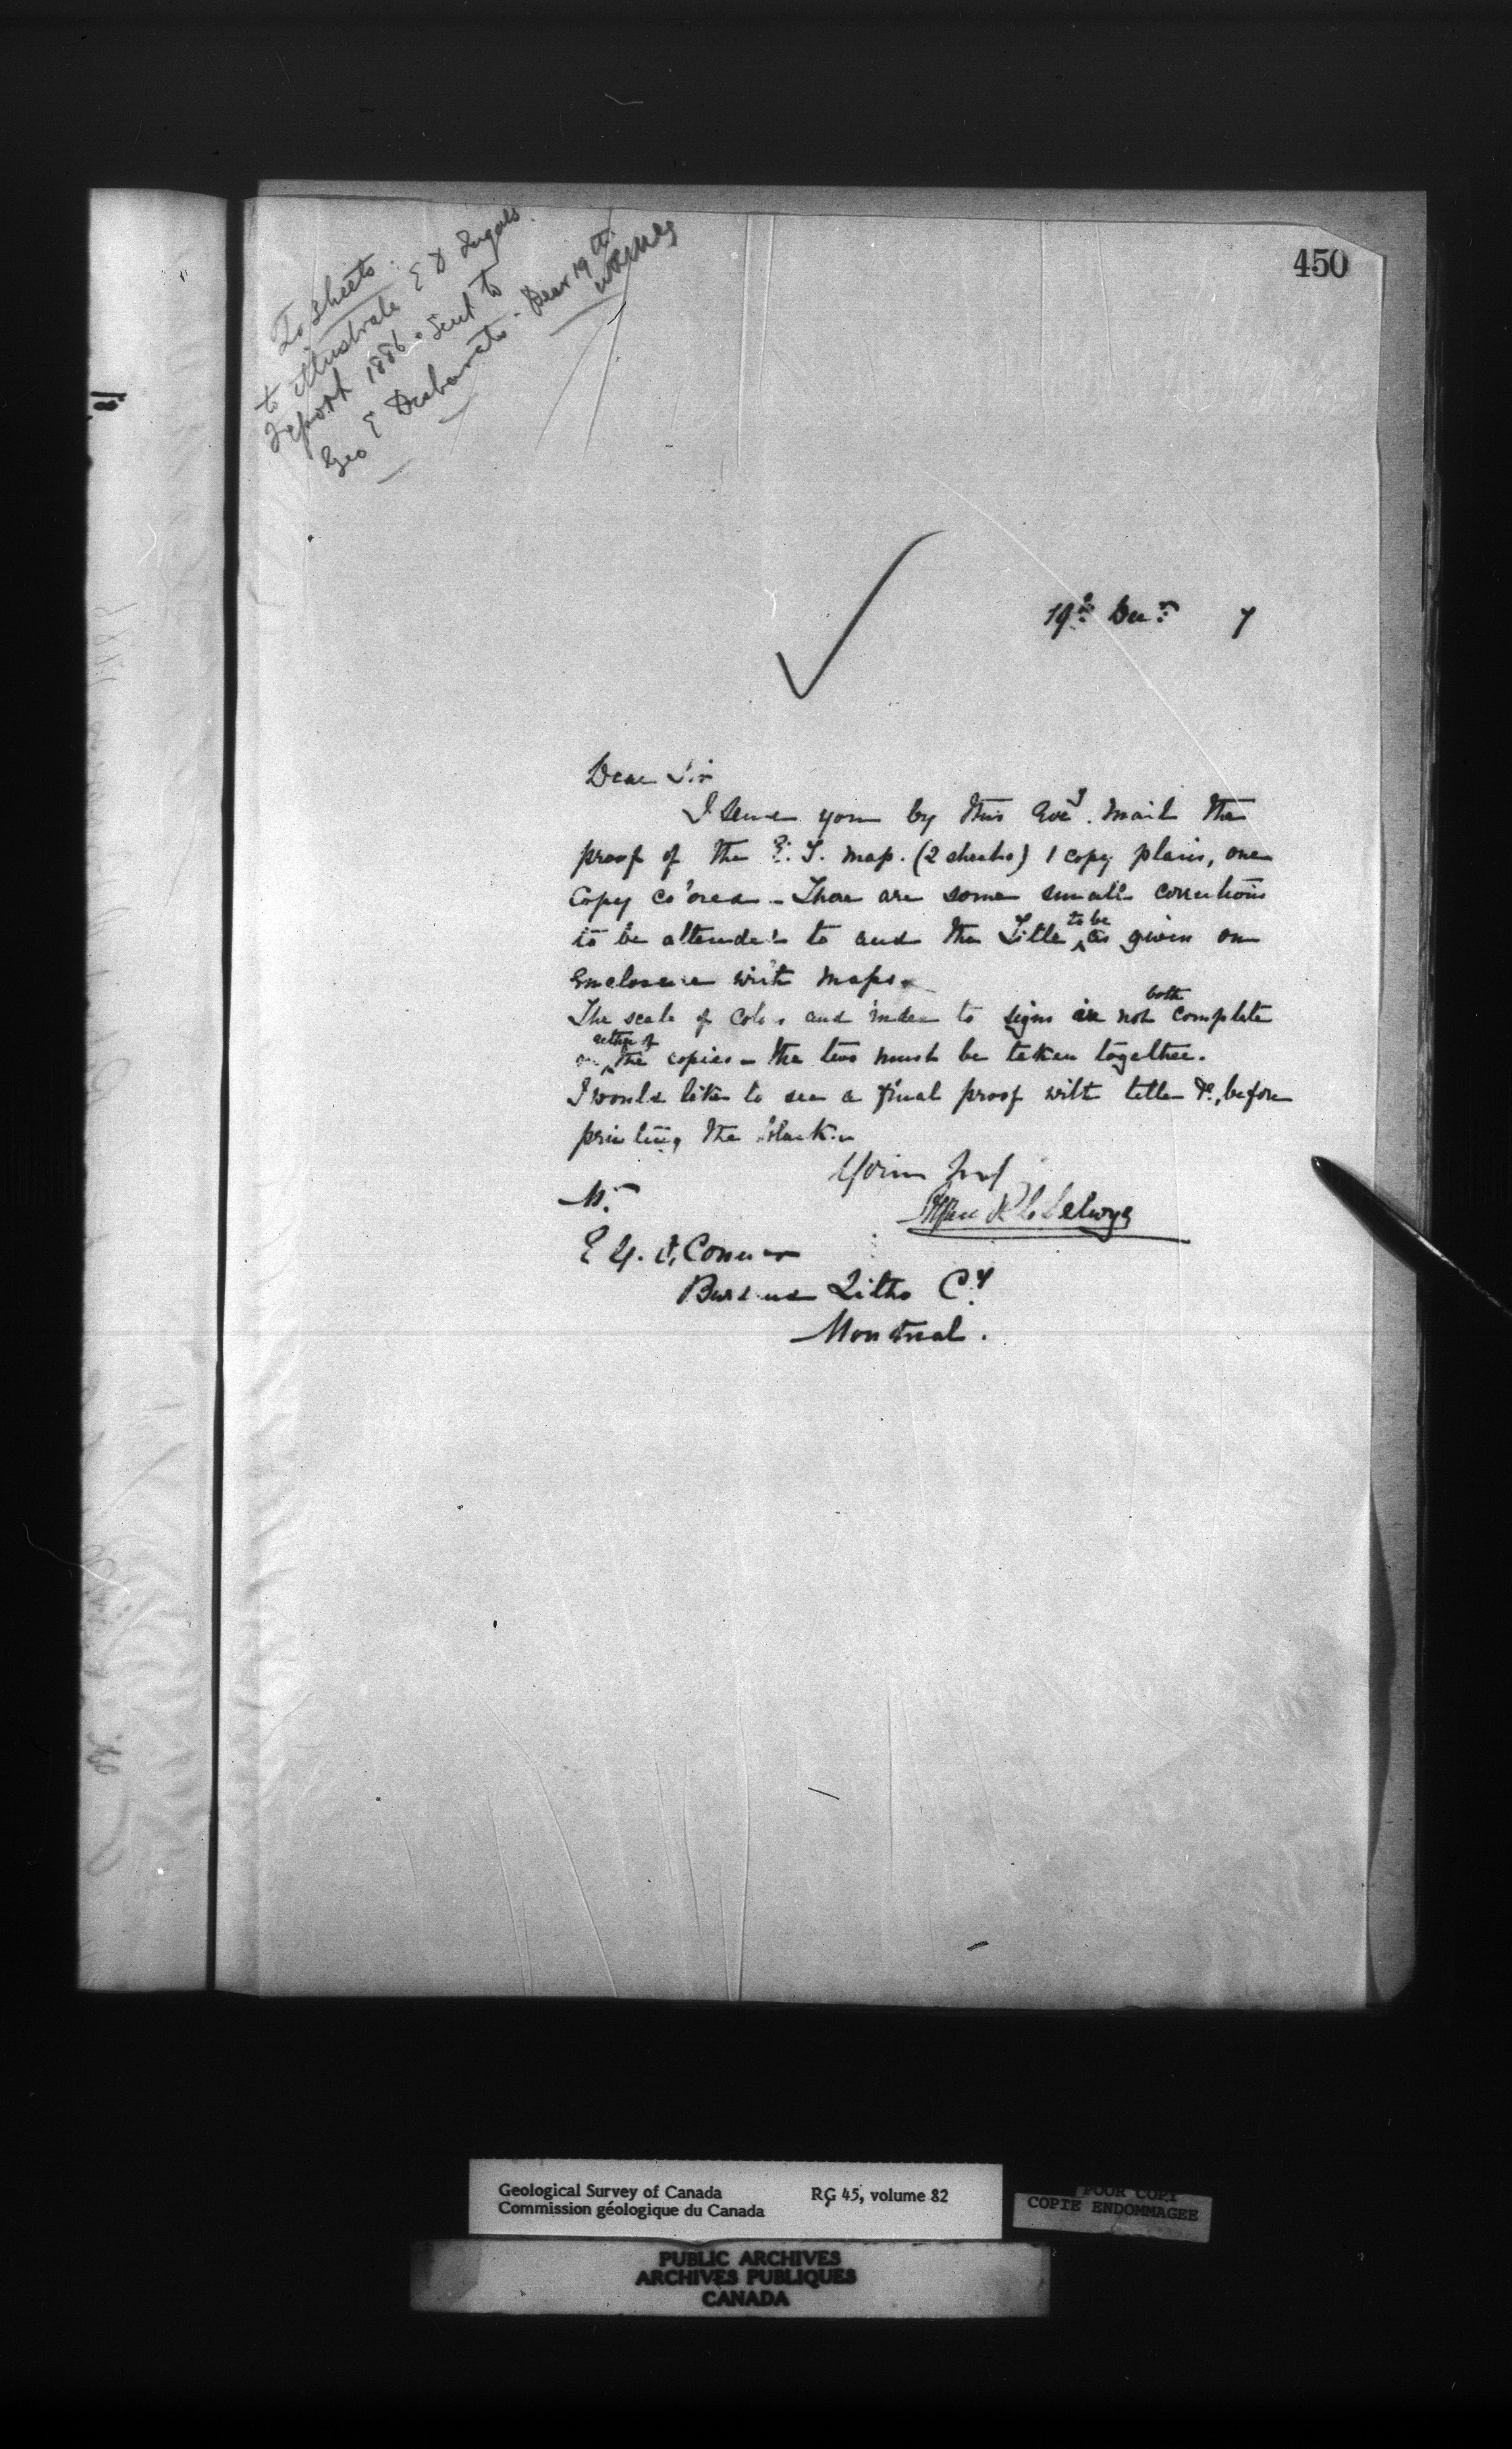 450
To Sheets.
to illustrate E D Ingalls
report 1886. Sent to
Geo E Desbarats. Decr 19th
19th Decr. 7
Dear Sir
I send you by this Eveg. mail the
proof of the E. T. map. (2 sheets) 1 copy plain, one
Copy colored - There are some small corrections
to be attended to and the Title to be as given on
Enclosure with maps.
The scale of colors and index to signs is not both complete
on either of the copies - the two must be taken together.
I would like to see a final proof with title &c, before
printing the black
Mr.
Alfred R C Selwyn
Litho Cy
Montreal.
Geological Survey of Canada
Commission géologique du Canada
RG 45, volume 82
POOR COPY
COPIE ENDOMMAGEE
PUBLIC ARCHIVES
ARCHIVES PUBLIQUES
CANADA